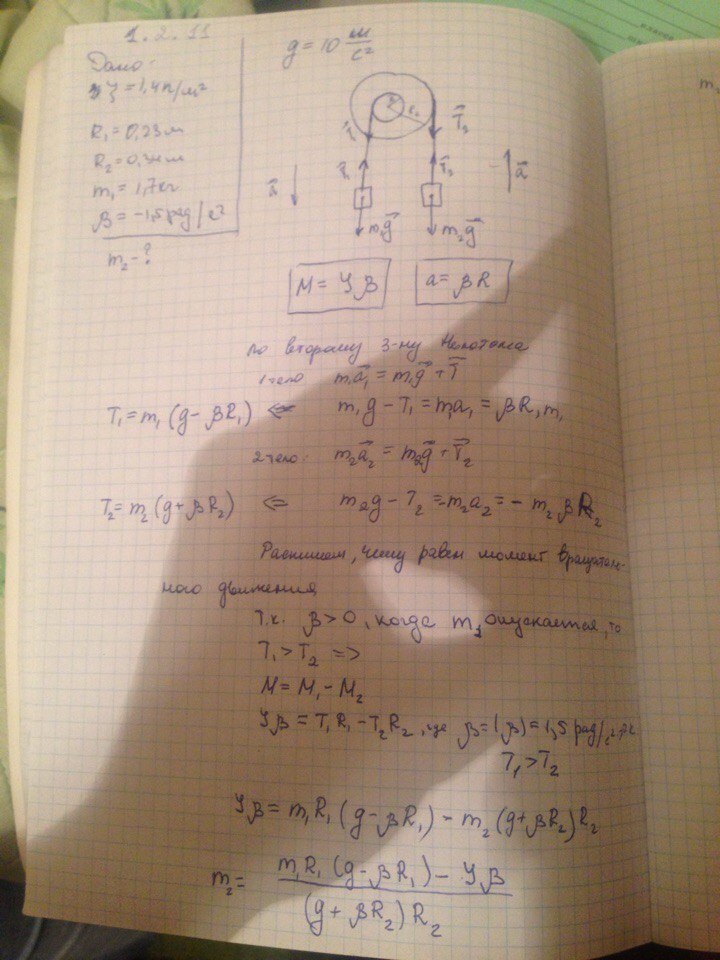 1.2.11
g = 10 м/с²
Дано:
J = 1,4 кг/м²
R₁ = 0,23 м
R₂ = 0,34 м
m₁ = 1,7 кг
β = -1,5 рад/с²
m₂ - ?
R₂
T₂
T₁
T₂
a
a
m₁g
m₂g
M = Jβ
a = βR
по второму з-ну Ньютона
1 тело m₁a₁ = m₁g + T
T₁ = m₁(g - βR₁) ⇐ m₁g - T₁ = m₁a₁ = βR₁m₁
2 тело: m₂a₂ = m₂g + T₂
T₂ = m₂(g + βR₂) ⇐ m₂g - T₂ = -m₂a₂ = - m₂βR₂
Распишем, чему равен момент вращатель-
ного движения
Т.к. β > 0, когда m₁ опускается, то
T₁ > T₂ =>
M = M₁ - M₂
Jβ = T₁R₁ - T₂R₂, где β = |β| = 1,5 рад/с², т.к
T₁ > T₂
Jβ = m₁R₁(g - βR₁) - m₂(g + βR₂)R₂
m₂ = m₁R₁(g - βR₁) - Jβ
(g + βR₂)R₂